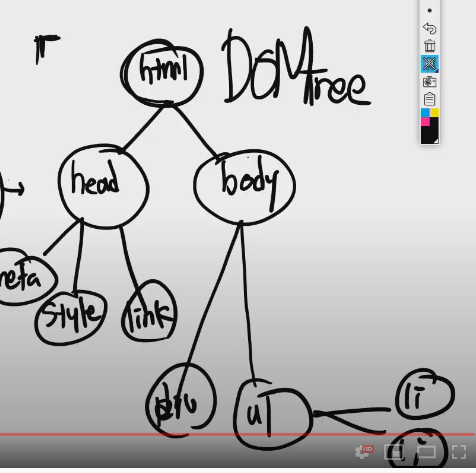 html
DOM tree
head
body
meta
style
link
div
ul
li
li
HD